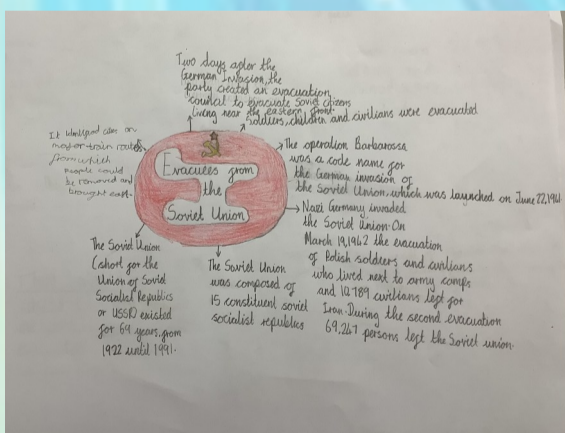 Two days after the
German Invasion, the
party created an evacuation
council to evacuate Soviet citizens
living near the eastern front.
Soldiers, children and civilians were evacuated
It identified cities on
major train routes
from which
people could
be removed and
brought east.
Evacuees from
the
Soviet Union
The operation Barbarossa
was a code name for
the German invasion of
the Soviet Union, which was launched on June 22, 1941
Nazi Germany invaded
the Soviet Union. On
March 19, 1942 the evacuation
of Polish soldiers and civilians
who lived next to army camps
and civilians left for
Iran. During the second evacuation
69,247 persons left the Soviet union.
The Soviet Union
(short for the
Union of Soviet
Socialist Republics
or USSR) existed
for 69 years, from
1922 until 1991.
The Soviet Union
was composed of
15 constituent soviet
socialist republics